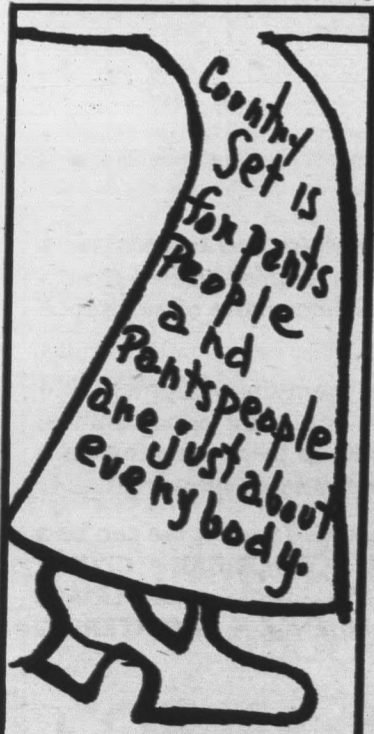 Country
Set is
for pants
People
and
Pantspeople
are just about
everybody.